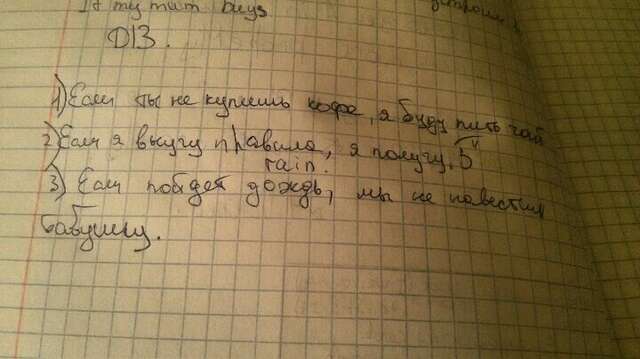 If my mum buys
D13.
1) Если ты не купишь кофе, я буду пить чай
2) Если я выучу правило, я получу "5"
rain.
3) Если пойдет дождь, мы не навестим
бабушку.